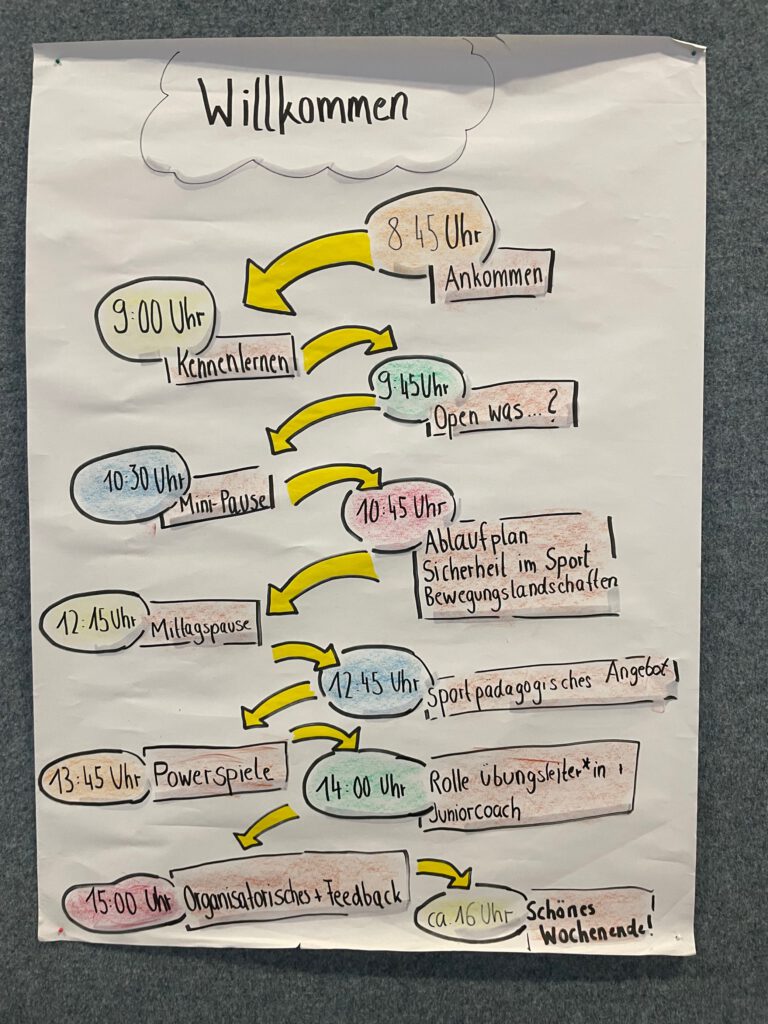 Willkommen
8:45 Uhr
Ankommen
9:00 Uhr
Kennenlernen
9:45 Uhr
Open was...?
10:30 Uhr
Mini-Pause
10:45 Uhr
Ablaufplan
Sicherheit im Sport
Bewegungslandschaften
12:15 Uhr
Mittagspause
12:45 Uhr
Sportpädagogisches Angebot
13:45 Uhr
Powerspiele
14:00 Uhr
Rolle Übungsleiter*in +
Juniorcoach
15:00 Uhr
Organisatorisches + Feedback
ca. 16 Uhr
Schönes
Wochenende!